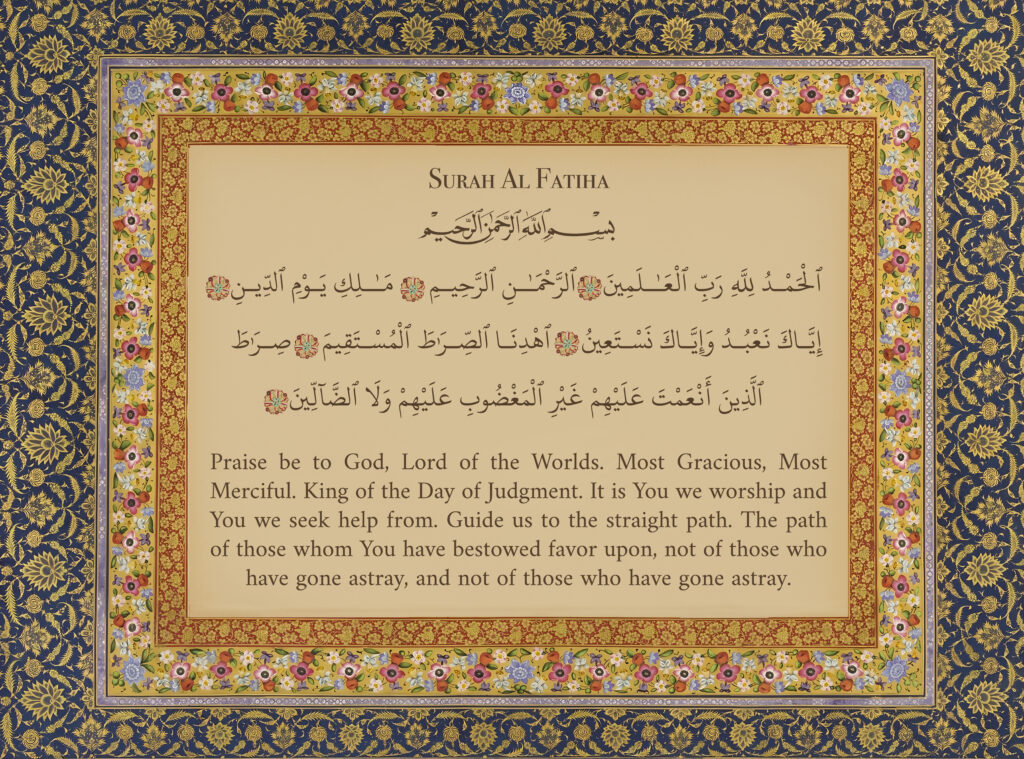 Surah Al Fatiha
بِسْمِ ٱللَّهِ ٱلرَّحْمَٰنِ ٱلرَّحِيمِ
ٱلْحَمْدُ لِلَّهِ رَبِّ ٱلْعَـٰلَمِينَ ٱلرَّحْمَـٰنِ ٱلرَّحِيمِ مَـٰلِكِ يَوْمِ ٱلدِّينِ
إِيَّاكَ نَعْبُدُ وَإِيَّاكَ نَسْتَعِينُ ٱهْدِنَا ٱلصِّرَٰطَ ٱلْمُسْتَقِيمَ صِرَٰطَ
ٱلَّذِينَ أَنْعَمْتَ عَلَيْهِمْ غَيْرِ ٱلْمَغْضُوبِ عَلَيْهِمْ وَلَا ٱلضَّآلِّينَ
Praise be to God, Lord of the Worlds. Most Gracious, Most
Merciful. King of the Day of Judgment. It is You we worship and
You we seek help from. Guide us to the straight path. The path
of those whom You have bestowed favor upon, not of those who
have gone astray, and not of those who have gone astray.